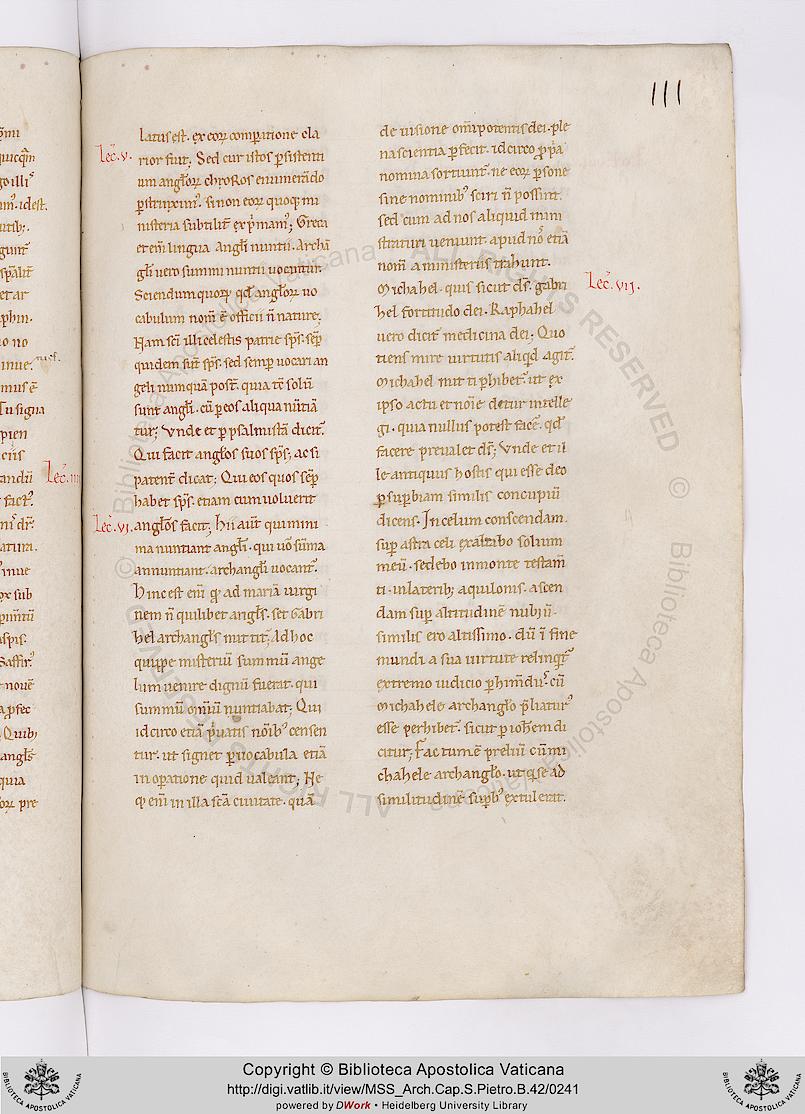 111
latus est. ex eoꝝ comꝑatione cla
Lec̃. v.
rior fuit; Sed cur istos ꝑsistenti
um angloꝝ choros enumerãdo
ꝑstrinximꝰ. si non eoꝝ quoqꝫ mi
nisteria subtilit̃ exp̃mamꝰ; Greca
etem̃ lingua angl̃i nuntii. archã
gl̃i uero summi nuntii uocantur.
Sciendum quoqꝫ qđ angl̃oꝝ uo
cabulum nom̃ ẽ officii ñ nature;
Nam sc̃i illi celestis patrie sp̃s. sẽp
quidem sũt sp̃s. sed semꝑ uocari an
geli nunquã poss̃t. quia tc̃ solũ
sunt angl̃i. cũ ꝑ eos aliqua nũtiã
tur; Vnde et ꝑ psalmistã dicit̃.
Qui facit angl̃os suos sp̃s; ac si
patent̃ dicat; Qui eos quos sẽp
habet sp̃s. etiam cum uoluerit
Lec̃. vi.
angl̃os facit; Hii aũt qui mini
ma nuntiant angl̃i. qui uõ sũma
annuntiant. archangl̃i uocant̃.
Hinc est em̃ qꝫ ad mariã uirgi
nem ñ quilibet angl̃s. set Gabri
hel archangl̃s mittit̃; Ad hoc
quippe misteriũ summũ ange
lum uenire dignũ fuerat. qui
summũ om̃iũ nuntiabat; Qui
idcirco etiã ṕuatis nõibꝰ censen
tur. ut signet̃ ꝑ uocabula etiã
in oꝑatione quid ualeant; Ne
qꝫ em̃ in illa sc̃a ciuitate. quã
de uisione om̃ipotentis dei. ple
na scientia ꝑfecit. idcirco ꝓpa
nomina sortiunt̃. ne eoꝝ ꝑsone
sine nominibꝰ sciri ñ possint.
sed cum ad nos aliquid mini
straturi ueniunt. apud nos etiã
nom̃ a ministeriis trahunt.
Lec̃. vii.
Michahel. quis sicut d̃s. gabri
hel fortitudo dei. Raphahel
uero dicit̃ medicina dei; Quo
tiens mire uirtutis aliqđ agit̃.
Michahel mitti ꝑhibet̃. ut ex
ipso actu et noĩe detur intelle
gi. quia nullus potest facẽ. qđ
facere preualet d̃s; Vnde et il
le antiquus hostis qui esse deo
ꝑ suꝑbiam similis concupiũ
dicens. In celum conscendam.
suꝑ astra celi exaltabo solium
meũ. sedebo in monte testam̃
ti. in laterib; aquilonis. ascen
dam suꝑ altitudinẽ nubiũ.
similis ero altissimo. dũ ĩ fine
mundi a sua uirtute relinqt̃.
extremo iudicio ꝑhimẽdꝰ. cũ
Michahele archangl̃o p̃liaturꝰ
esse perhibet̃. sicut ꝑ ioh̃em di
citur; Factum ẽ preliũ cũ mi
chahele archangl̃o. ut qui se ad
similitudinẽ suꝑbꝰ extulerit.
Copyright © Biblioteca Apostolica Vaticana
http://digi.vatlib.it/view/MSS_Arch.Cap.S.Pietro.B.42/0241
powered by DWork • Heidelberg University Library